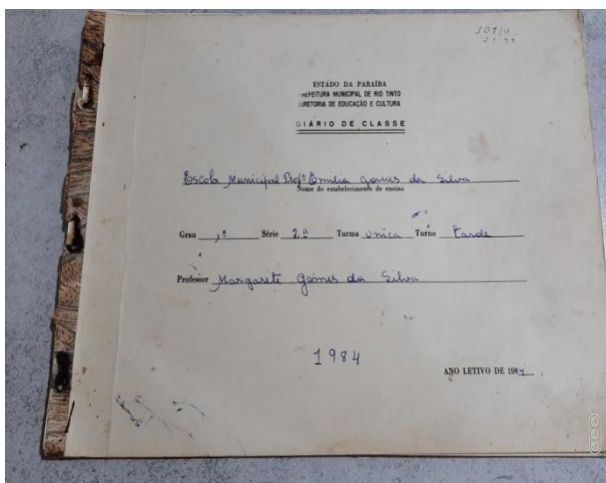 ESTADO DA PARAÍBA
PREFEITURA MUNICIPAL DE RIO TINTO
DIRETORIA DE EDUCAÇÃO E CULTURA
DIÁRIO DE CLASSE
Escola Municipal Profª Emilia Gomes da Silva
Nome do estabelecimento de ensino
Grau 1º Série 2ª Turma única Turno tarde
Professor Margarete Gomes da Silva
1984
ANO LETIVO DE 1984